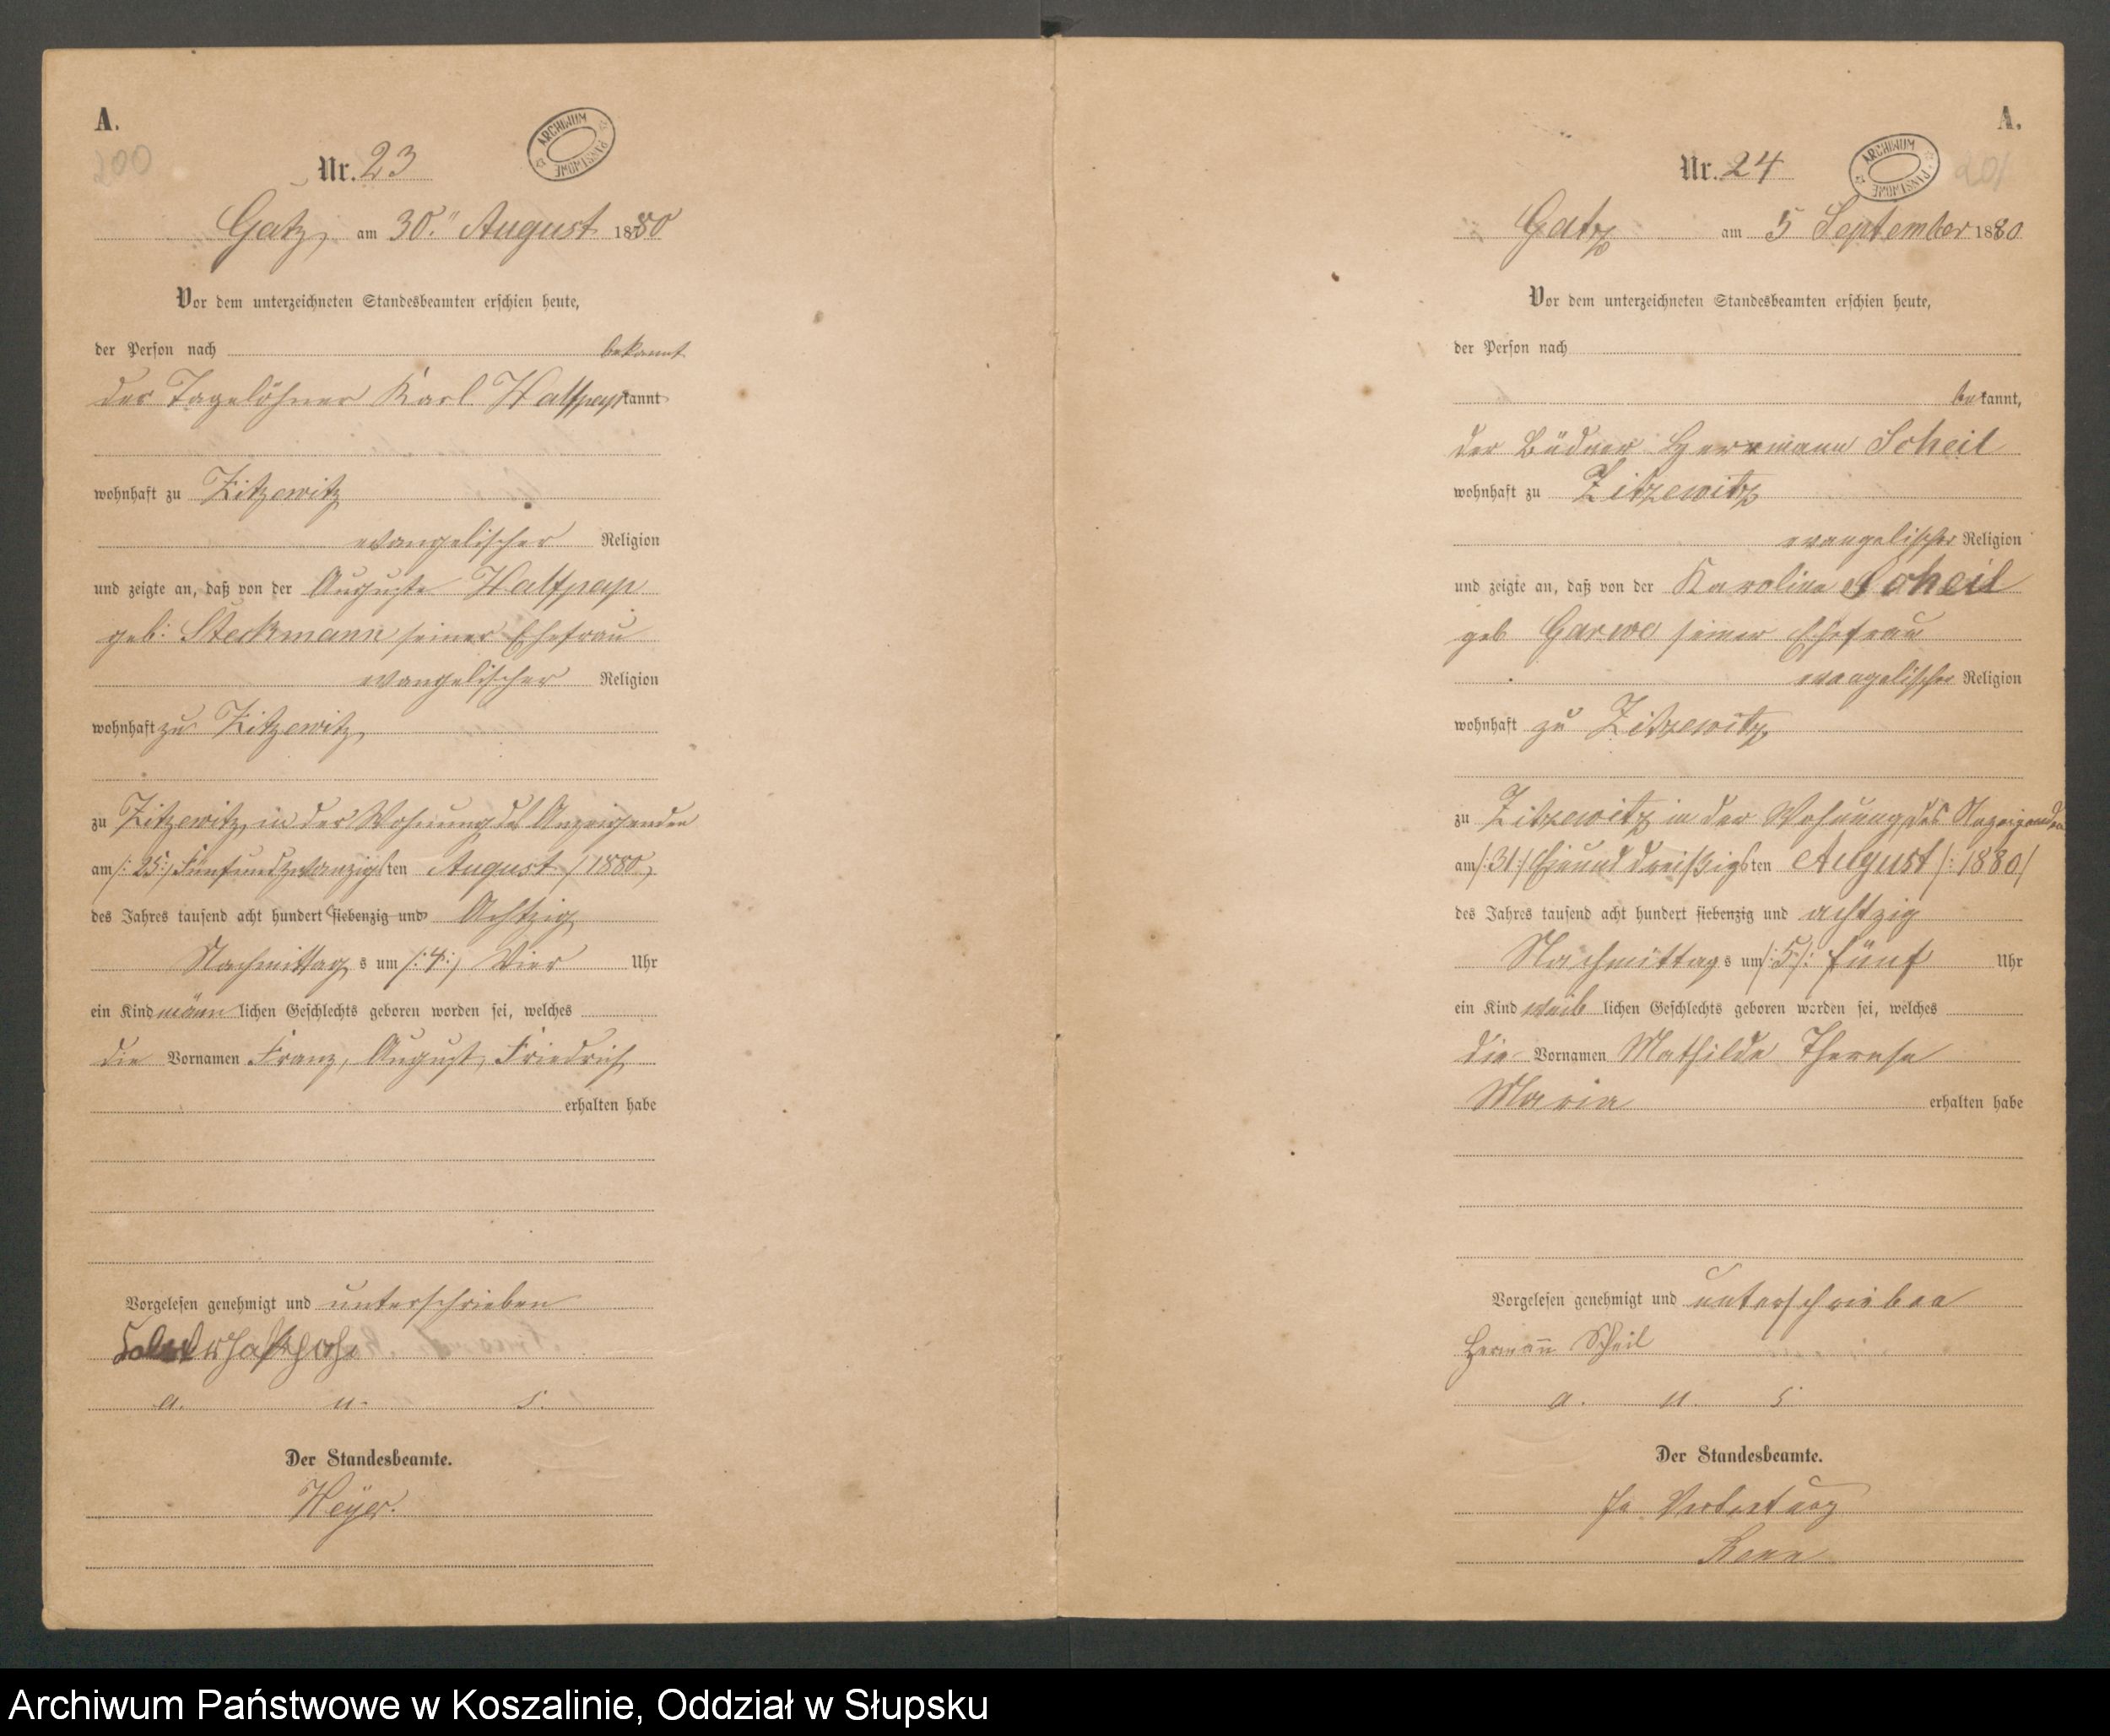 A.
200
Nr. 23
ARCHIWUM PAŃSTWOWE
Gatz, am 30.ten August 1880
Vor dem unterzeichneten Standesbeamten erschien heute,
der Person nach bekannt
der Tagelöhner Karl Halfpap kannt
wohnhaft zu Zitzewitz
evangelischer Religion
und zeigte an, daß von der Auguste Halfpap
geb: Steckmann seiner Ehefrau
evangelischer Religion
wohnhaft zu Zitzewitz,
zu Zitzewitz, in der Wohnung des Anzeigenden
am /: 25 :/ Fünfundzwanzigsten August /1880,
des Jahres tausend acht hundert siebenzig und Achtzig
Nachmittag s um /: 4 :/ Vier Uhr
ein Kind männlichen Geschlechts geboren worden sei, welches
die Vornamen Franz, August, Friedrich
erhalten habe
Vorgelesen genehmigt und unterschrieben
a. u. s.
Der Standesbeamte.
Heyer.
A.
201
Nr. 24
ARCHIWUM PAŃSTWOWE
Gatz am 5 September 1880
Vor dem unterzeichneten Standesbeamten erschien heute,
der Person nach
bekannt,
der Büdner Herrmann Scheil
wohnhaft zu Zitzewitz
evangelischer Religion
und zeigte an, daß von der Karoline Scheil
geb Garwe seiner Ehefrau
evangelischer Religion
wohnhaft zu Zitzewitz,
zu Zitzewitz in der Wohnung des Anzeigenden
am /: 31 :/ Einund dreißigsten August /: 1880 /
des Jahres tausend acht hundert siebenzig und achtzig
Nachmittag s um /: 5 /: fünf Uhr
ein Kind weiblichen Geschlechts geboren worden sei, welches
die Vornamen Mathilde Therese
Maria erhalten habe
Vorgelesen genehmigt und unterschrieben
Hermann Scheil
a. u. s.
Der Standesbeamte.
In Vertretung
Archiwum Państwowe w Koszalinie, Oddział w Słupsku